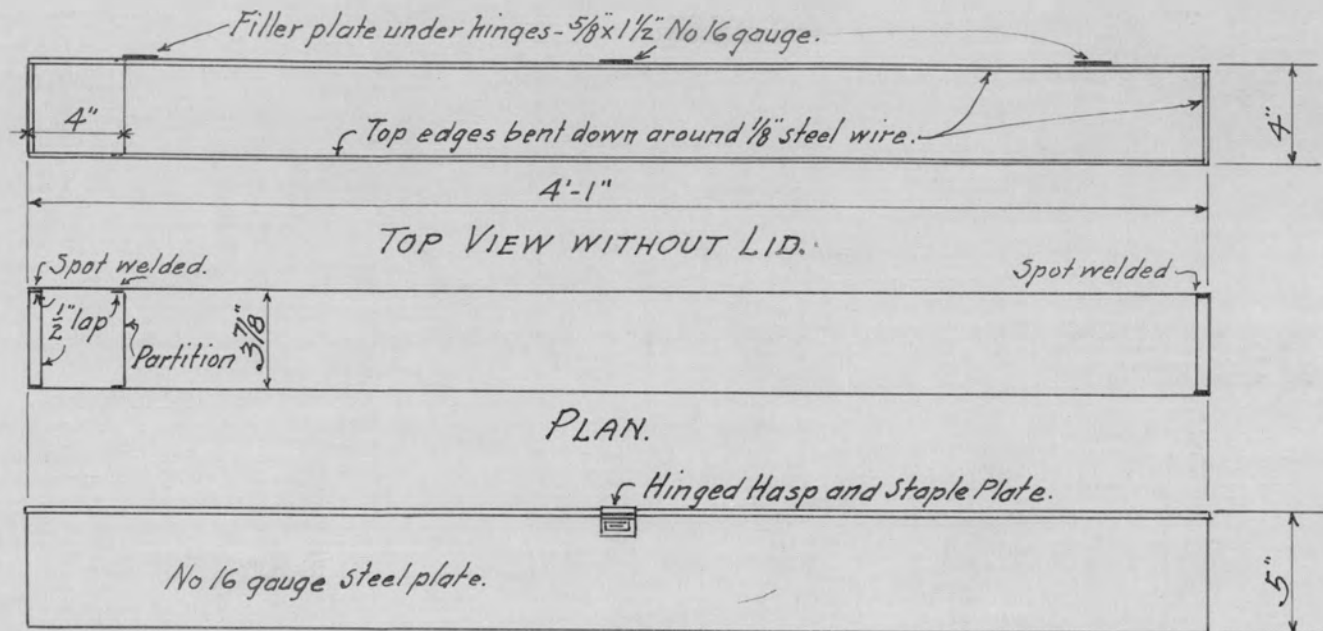 Filler plate under hinges - 5/8" x 1 1/2" No 16 gauge.
4"
Top edges bent down around 1/8" steel wire.
4"
4'-1"
TOP VIEW WITHOUT LID.
Spot welded.
Spot welded
1/2" lap
Partition
3 7/8"
PLAN.
Hinged Hasp and Staple Plate.
No 16 gauge steel plate.
5"